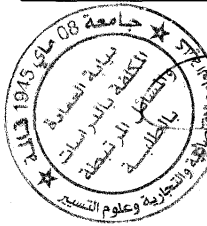 جامعة 08 ماي 1945 قالمة
نيابة العمادة
المكلفة بالدراسات
والمسائل المرتبطة
بالطلبة
والتجارية وعلوم التسيير